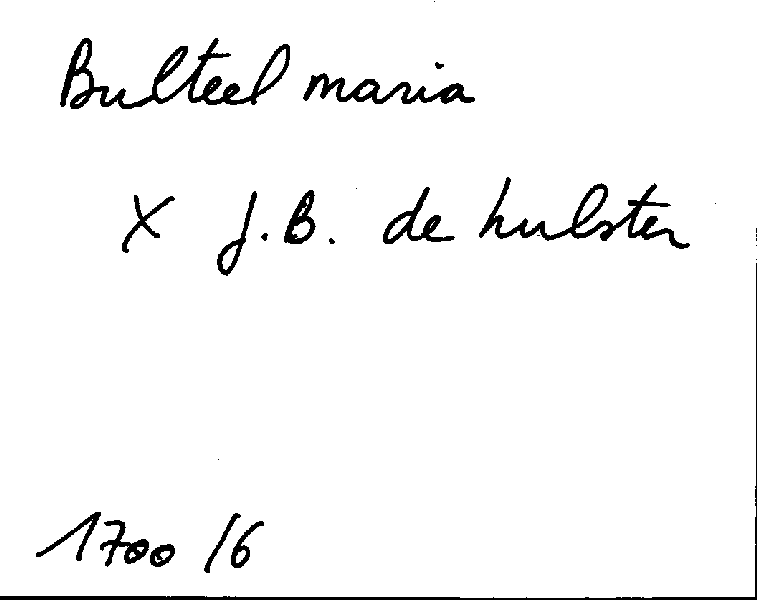 Bulteel maria
X J.B. de hulster
1700 /6